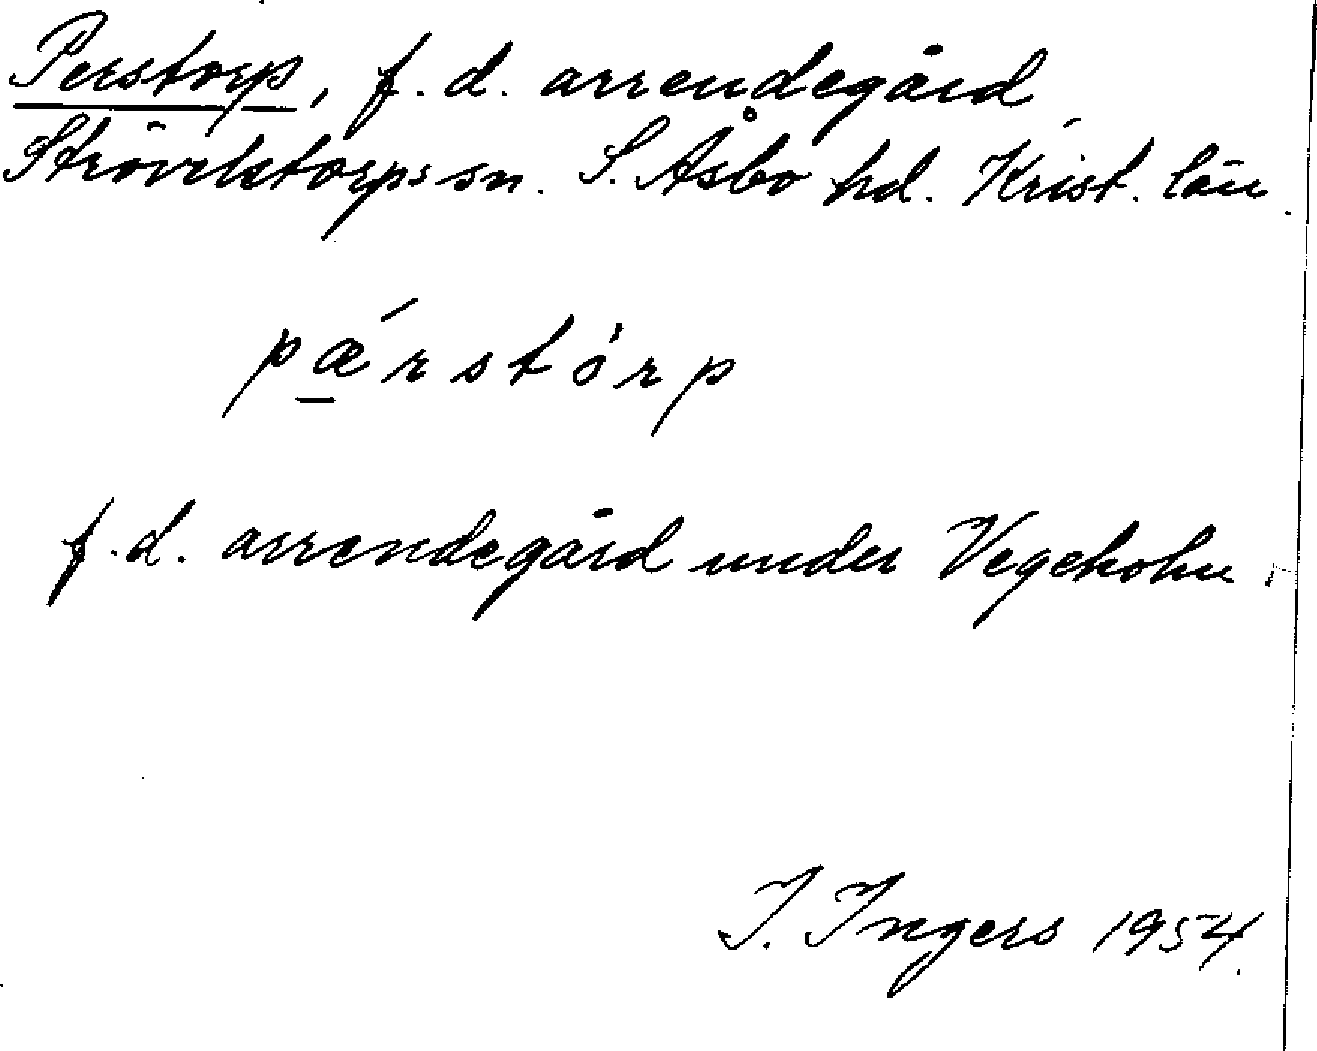 Perstorp, f. d. arrendegård
Strövelstorps sn. S. Åsbo hd. Krist. län.
pǽrstòrp
f. d. arrendegård under Vegeholm.
I. Ingers 1954.